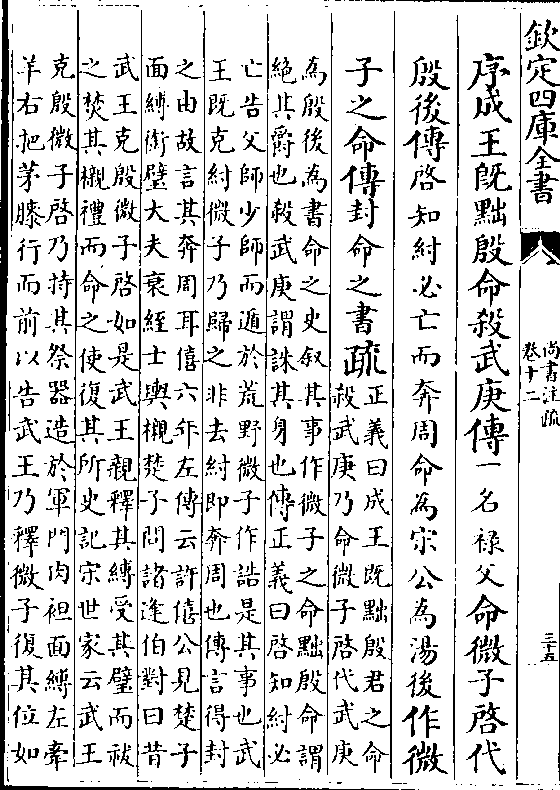 欽定四庫全書
尚書注疏
卷十二
三十五
序成王既黜殷命殺武庚傳一名禄父命微子啓代
殷後傳啓知紂必亡而奔周命為宋公為湯後作微
子之命傳封命之書疏正義曰成王既黜殷君之命
殺武庚乃命微子啓代武庚
為殷後為書命之史叙其事作微子之命黜殷命謂
絶其爵也殺武庚謂誅其身也傳正義曰啓知紂必
亡告父師少師而遁於荒野微子作誥是其事也武
王既克紂微子乃歸之非去紂即奔周也傳言得封
之由故言其奔周耳僖六年左傳云許僖公見楚子
面縛銜璧大夫衰絰士輿櫬楚子問諸逢伯對曰昔
武王克殷微子啓如是武王親釋其縛受其璧而祓
之焚其櫬禮而命之使復其所史記宋世家云武王
克殷微子啓乃持其祭器造於軍門肉袒面縛左牽
羊右把茅膝行而前以告武王乃釋微子復其位如